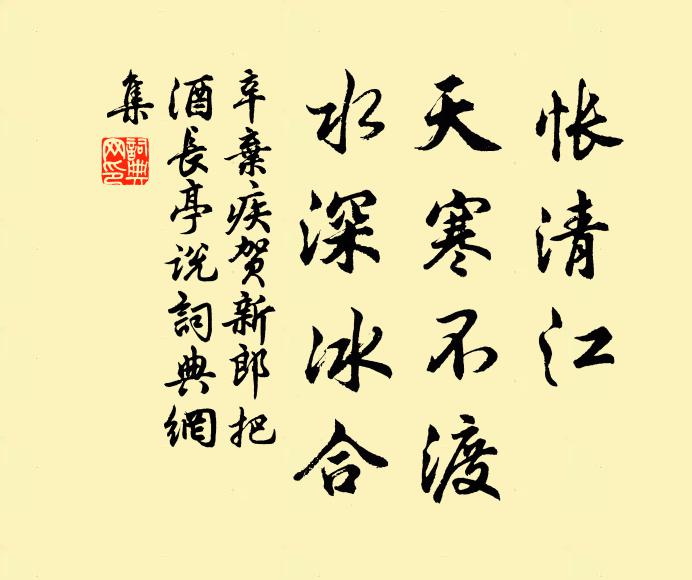 悵清江
天寒不渡
水深冰合
辛棄疾賀新郎把
酒長亭说詞典網
集
詞典
网印